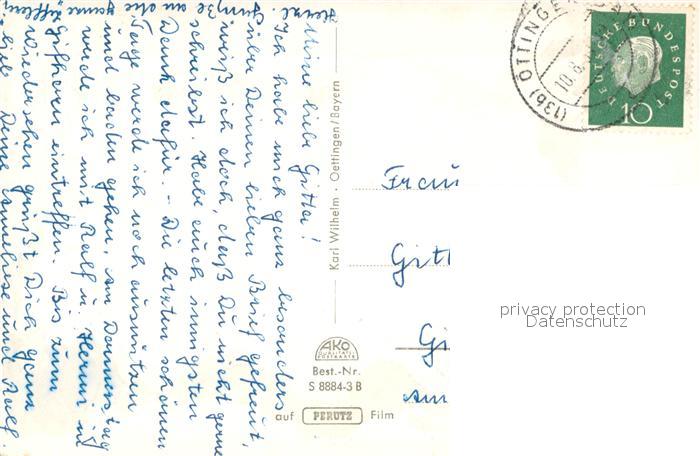 Meine liebe Gitta!
Ich habe mich ganz besonders
über Deinen lieben Brief gefreut,
weiß ich doch, daß Du nicht gerne
schreibst. Habe auch innigsten
Dank dafür. - Die letzten schönen
Tage werde ich noch ausnützen
und baden gehen. Am Donnerstag
werde ich mit Ralf u. Hermi in
Gifhorn eintreffen. Bis zum
Wiedersehen grüßt Dich ganz
lieb Deine Anneliese und Ralf.
Herzl. Grüße an die
ganze
Karl Wilhelm · Oettingen/Bayern
AKO
QUALITÄTS
POSTKARTE
Best.-Nr.
S 8884-3 B
auf PERUTZ Film
(13b) ÖTTINGEN
10.8.
DEUTSCHE BUNDESPOST
10
Frau
Gitt
Gi
Am
privacy protection
Datenschutz